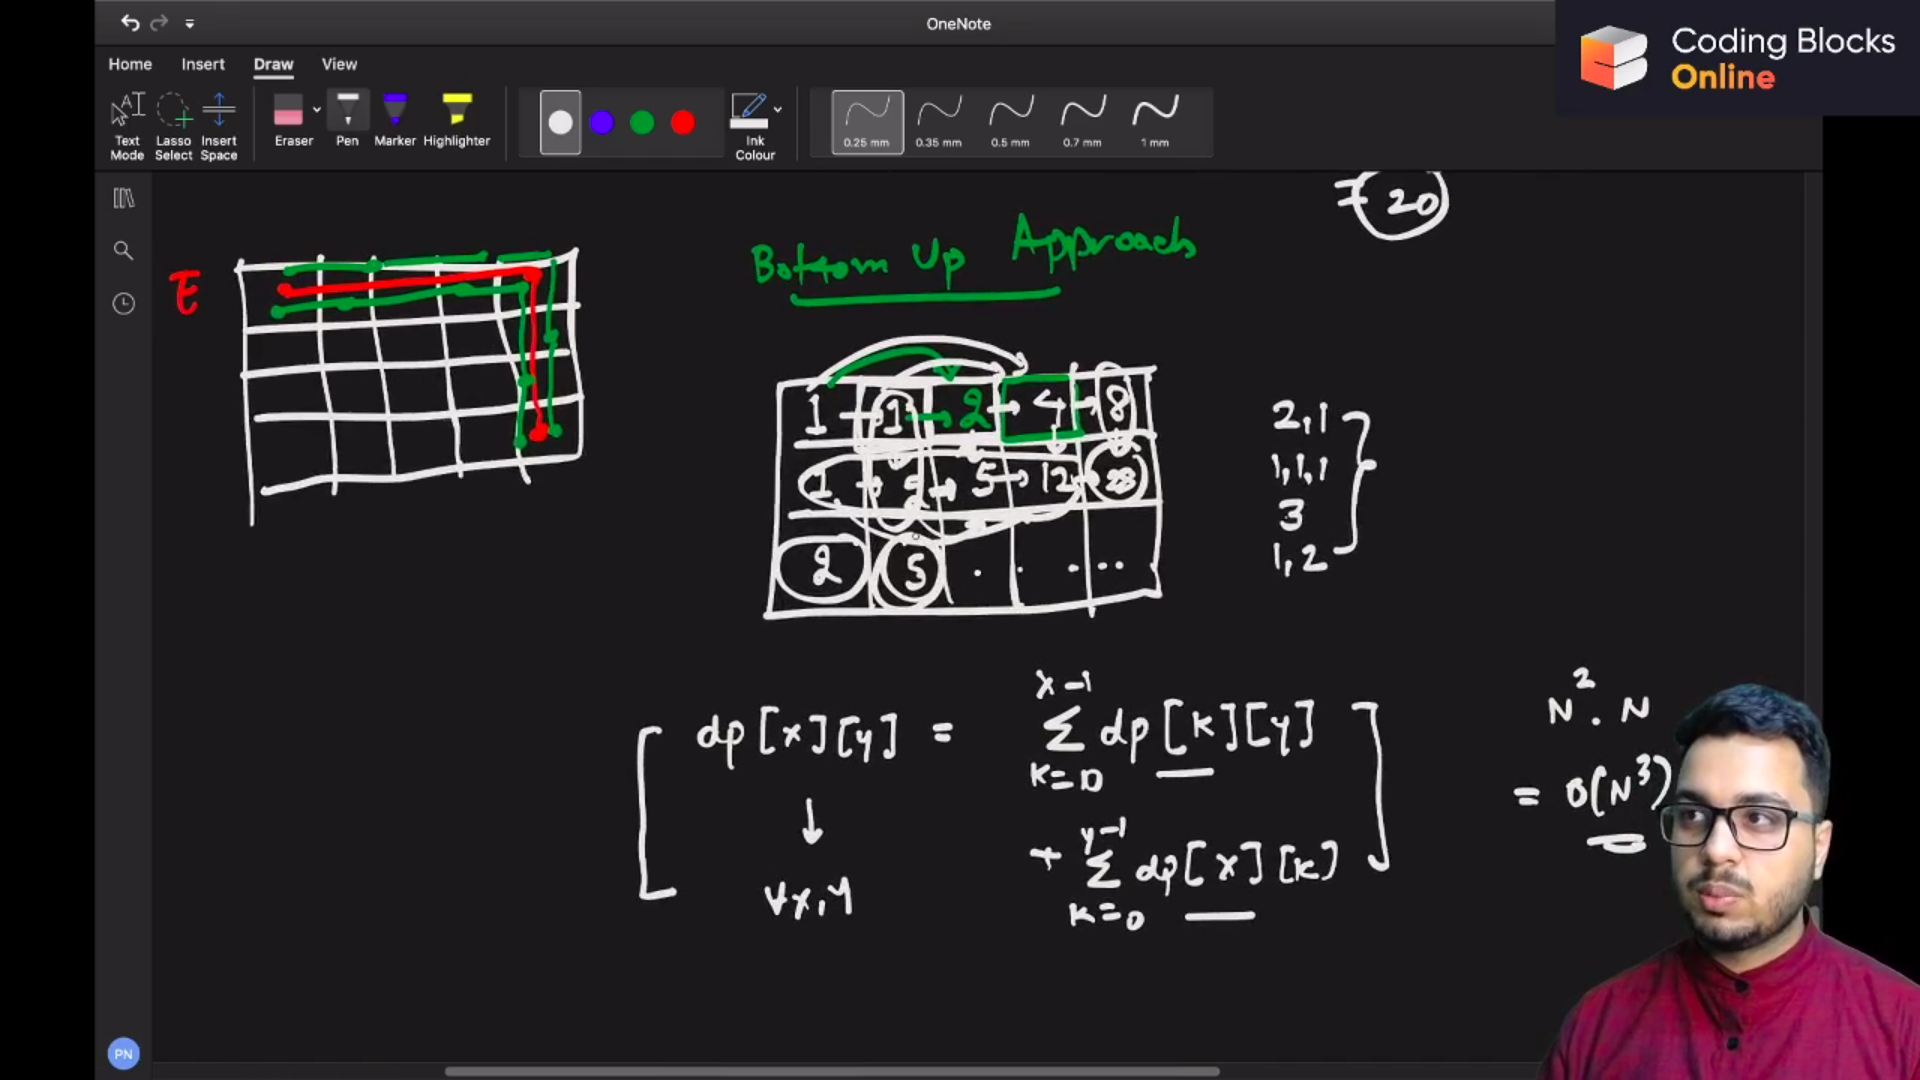 OneNote
Coding Blocks
Online
Home Insert Draw View
Text Mode
Lasso Select
Insert Space
Eraser
Pen
Marker
Highlighter
Ink Colour
0.25 mm
0.35 mm
0.5 mm
0.7 mm
1 mm
= 20
Bottom Up Approach
E
1 1 → 2 → 4 → 8
1 → 2 → 5 → 12 → 28
2 5 . . . . .
2,1
1,1,1
3
1,2
dp[x][y] = x-1 Σ k=0 dp[k][y]
+ y-1 Σ k=0 dp[x][k]
↓
∀x,y
N² . N
= O(N³)
PN